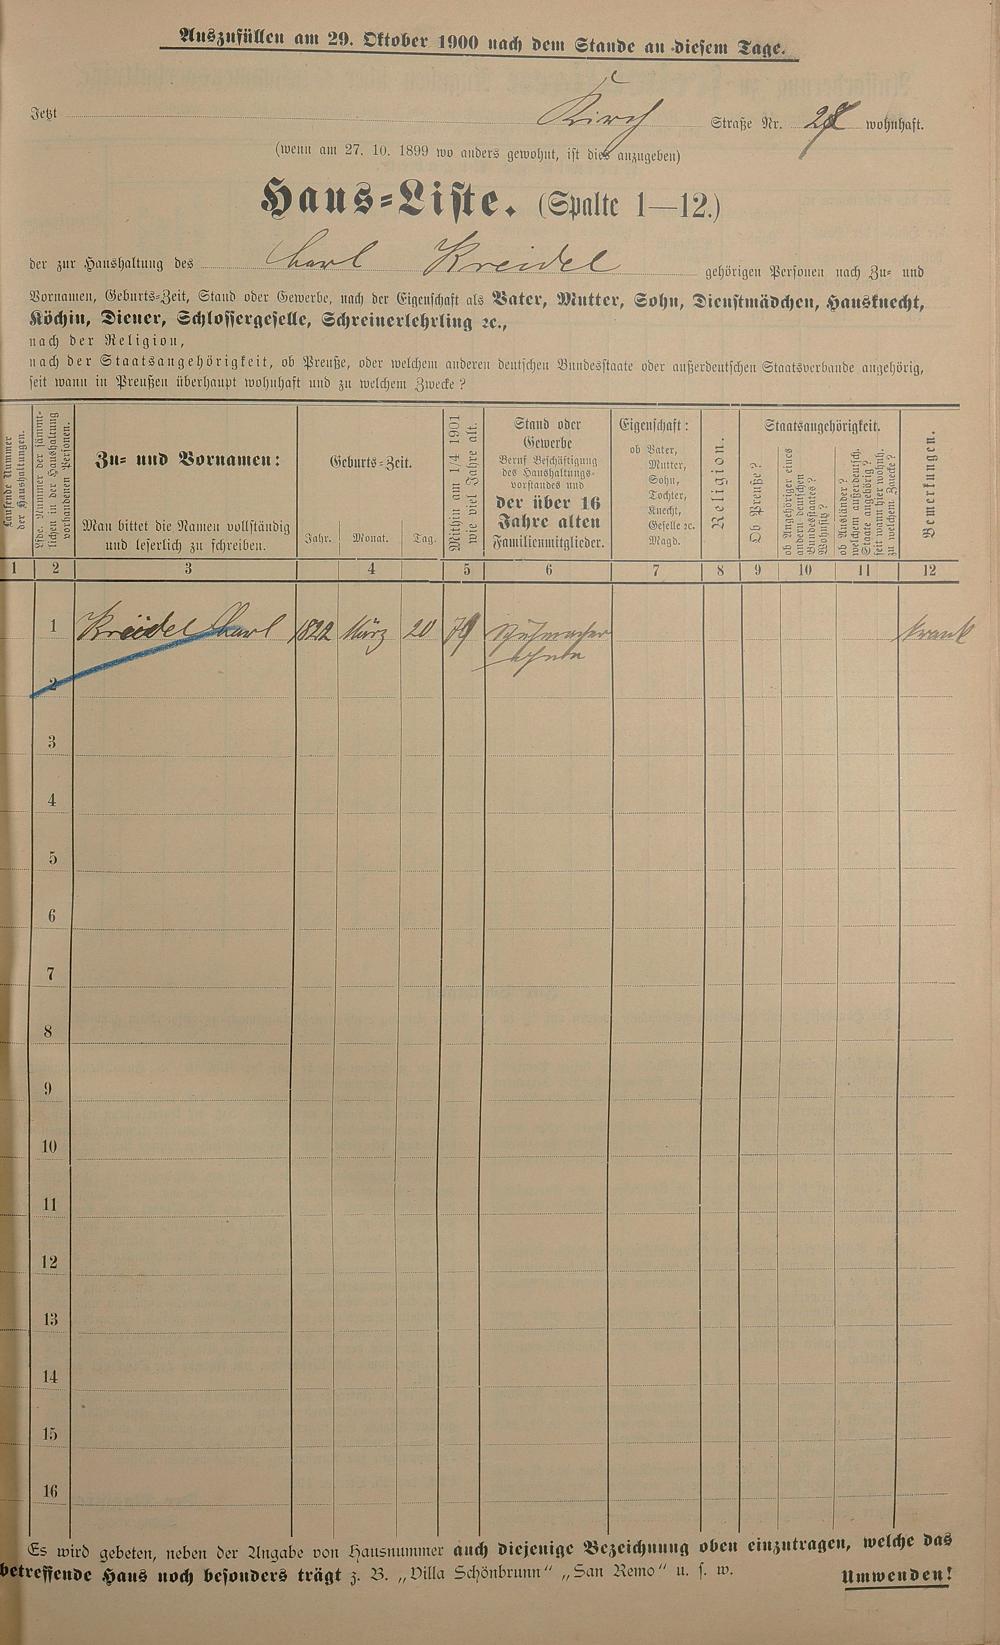 Auszufüllen am 29. Oktober 1900 nach dem Stande an diesem Tage.
Jetzt Kirch Straße Nr. wohnhaft.
(wenn am 27. 10. 1899 wo anders gewohnt, ist dies anzugeben)
Haus-Liste. (Spalte 1—12.)
der zur Haushaltung des Carl Kreidel gehörigen Personen nach Zu- und
Vornamen, Geburts-Zeit, Stand oder Gewerbe, nach der Eigenschaft als Vater, Mutter, Sohn, Dienstmädchen, Hausknecht,
Köchin, Diener, Schlossergeselle, Schreinerlehrling ꝛc.,
nach der Religion,
nach der Staatsangehörigkeit, ob Preuße, oder welchem anderen deutschen Bundesstaate oder außerdeutschen Staatsverbande angehörig,
seit wann in Preußen überhaupt wohnhaft und zu welchem Zwecke?
Laufende Nummer
der Haushaltungen.
Lfde. Nummer der sämmt-
lichen in der Haushaltung
vorhandenen Personen.
Zu- und Vornamen:
Man bittet die Namen vollständig
und leserlich zu schreiben.
Geburts-Zeit.
Jahr. Monat. Tag.
Mithin am 1/4 1901
wie viel Jahre alt.
Stand oder
Gewerbe
Beruf Beschäftigung
des Haushaltungs-
vorstandes und
der über 16
Jahre alten
Familienmitglieder.
Eigenschaft:
ob Vater,
Mutter,
Sohn,
Tochter,
Knecht,
Geselle ꝛc.
Magd.
Religion.
Staatsangehörigkeit.
Ob Preuße?
ob Angehöriger eines
andern deutschen
Bundesstaates?
Wohnsitz?
ob Ausländer?
welchem außerdeutsch.
Staate angehörig?
seit wann hier wohnh.
zu welchem Zwecke?
Bemerkungen.
1 2 3 4 5 6 7 8 9 10 11 12
1 Kreidel Carl 1822 März 20 79 Schuhmacher krank
2
3
4
5
6
7
8
9
10
11
12
13
14
15
16
Es wird gebeten, neben der Angabe von Hausnummer auch diejenige Bezeichnung oben einzutragen, welche das
betreffende Haus noch besonders trägt z. B. „Villa Schönbrunn" „San Remo" u. s. w.
Umwenden!